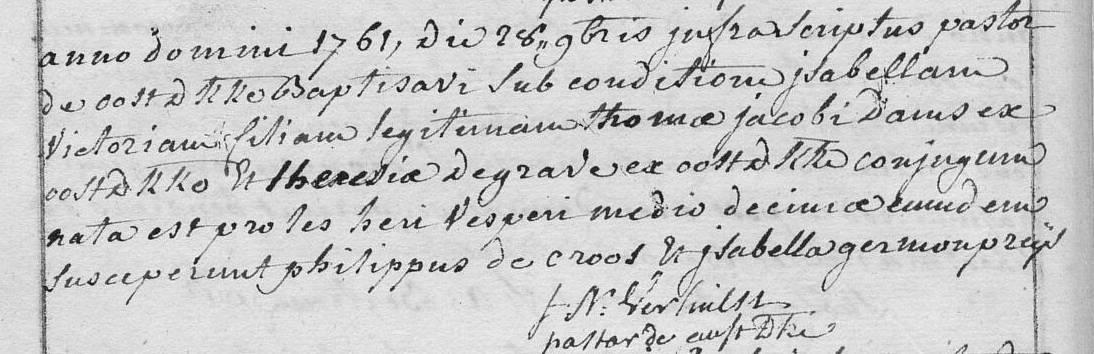 anno domini 1761, Die 28,, 9bris jnfra scriptus pastor
de oostDkke Baptisavi sub conditione jsabellam
Victoriam filiam legitimam thomæ jacobi Dams ex
oostDkke Et theresiæ Degrave ex oostDkke conjugum
nata est proles heri Vesperi medio decimæ eumdem
susceperunt philippus de croos Et jsabella germonpreys
Verhulst
pastor de oustDke